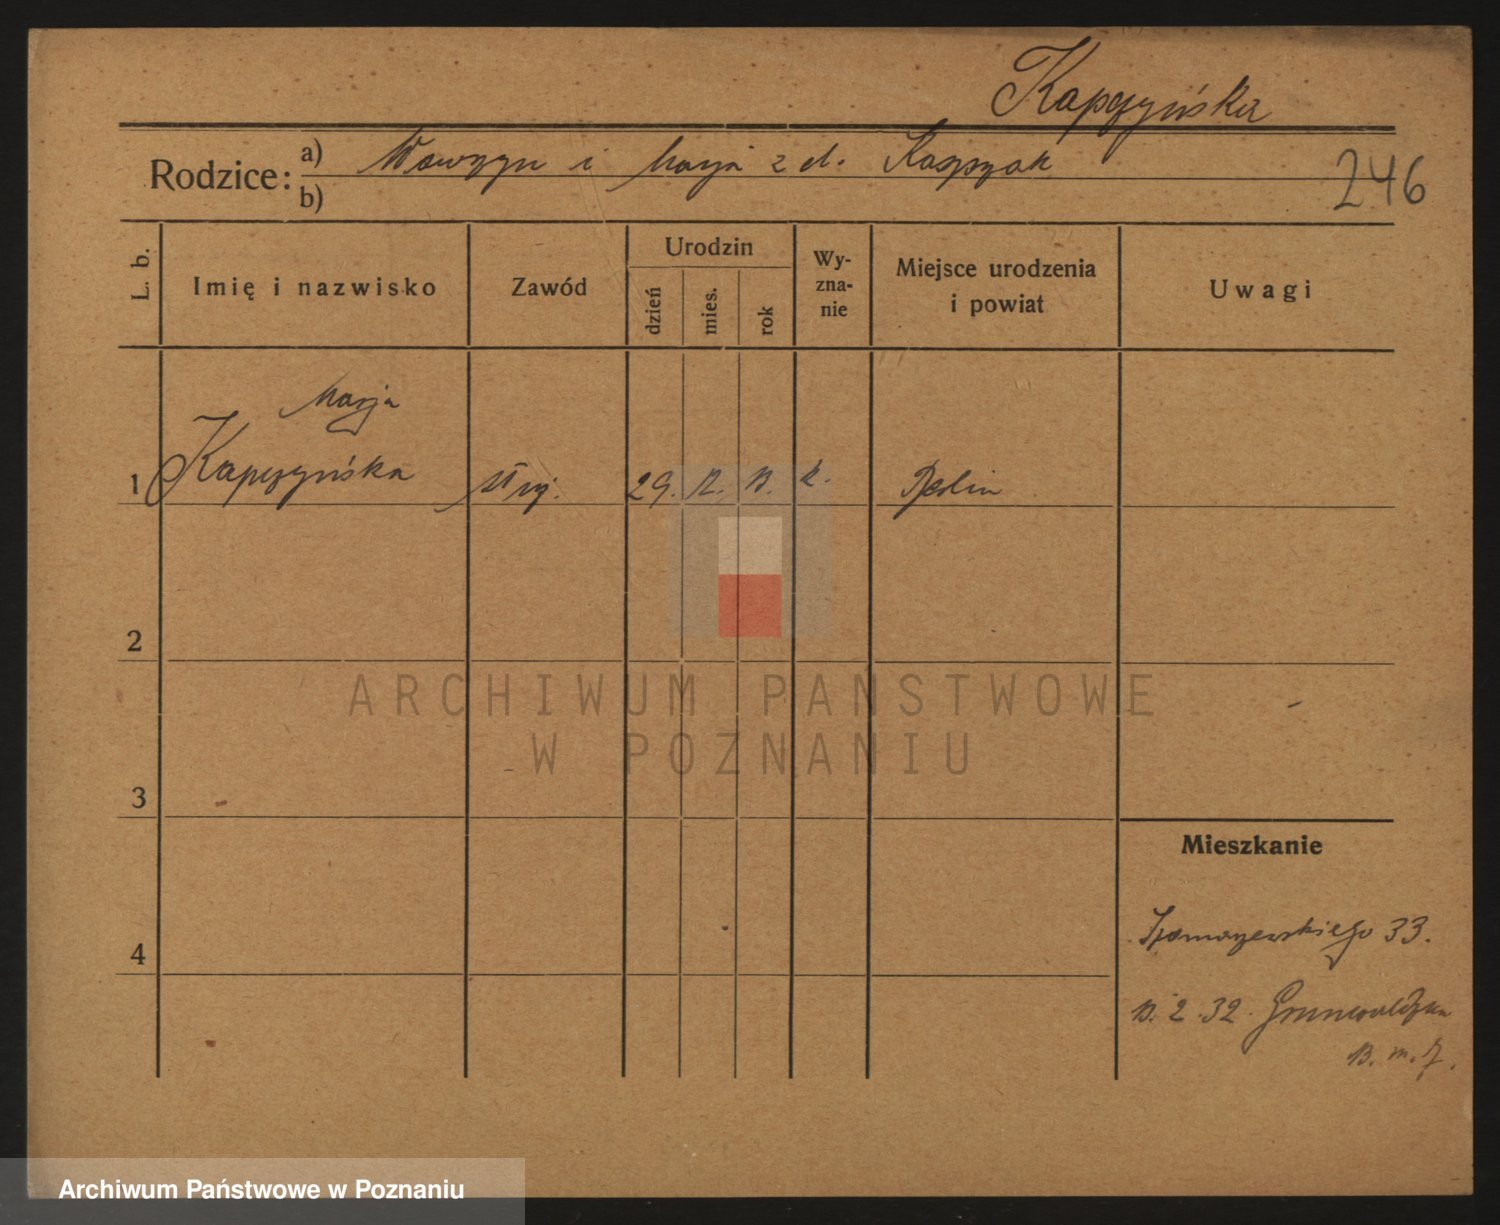 Kapczyńska
Rodzice: a) Wawrzyn i Marja z d. Kasprzak
b)
246
L. b. Imię i nazwisko Zawód Urodzin dzień mies. rok Wy-zna-nie Miejsce urodzenia i powiat Uwagi
Marja
1 Kapczyńska 29. 12. 13. k. Berlin
2
ARCHIWUM PAŃSTWOWE
W POZNANIU
3
Mieszkanie
33.
4
13. 2. 32. Grunwaldzka
13. m. 7.
Archiwum Państwowe w Poznaniu